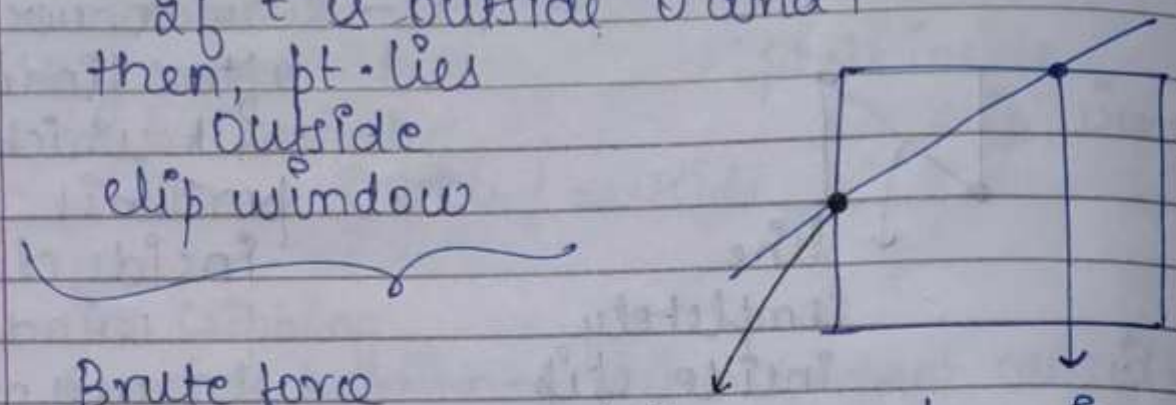 If t is outside 0 and 1
then, pt. lies
outside
clip window
Brute force